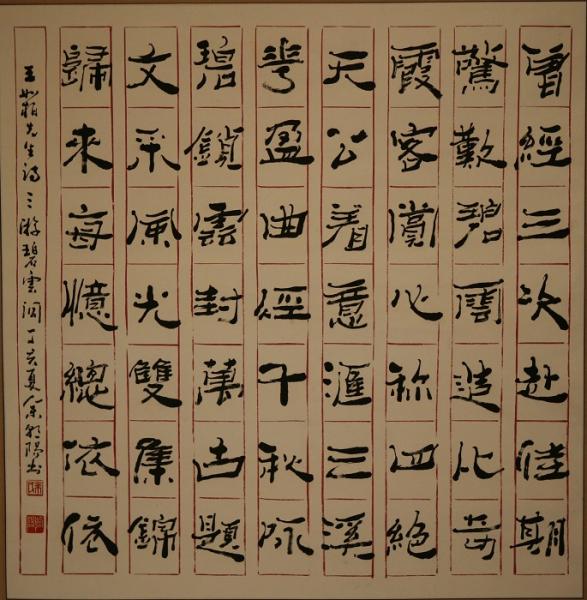 曾經三次赴佳期
驚歎碧雲造化奇
霞客賞心称四絕
天公着意滙三溪
盈曲徑千秋詠
碧鎖雲封萬古題
文采風光雙集錦
歸來每憶總依依
王如柏先生詩三游碧雲洞丁亥夏書